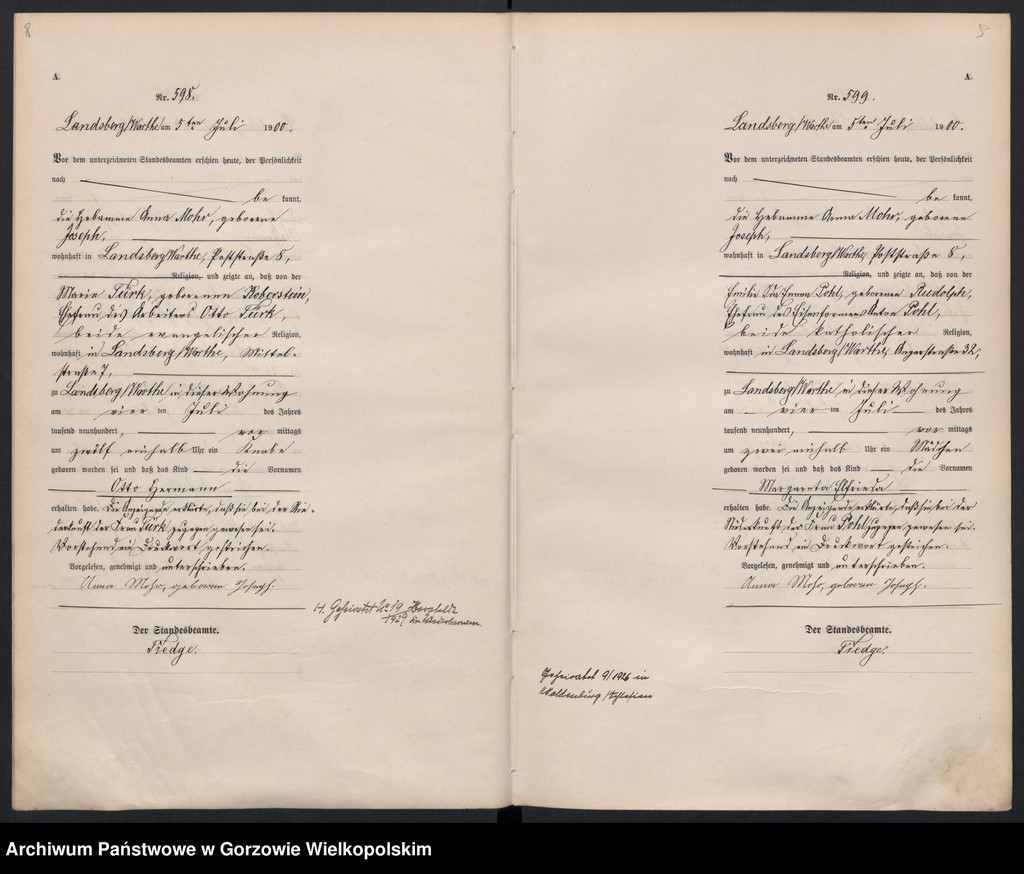 8
A.
Nr. 598.
Landsberg/Warthe am 5ten Juli 1900.
Vor dem unterzeichneten Standesbeamten erschien heute, der Persönlichkeit
nach
be kannt,
die Hebamme Anna Mohr, geborene
Joseph,
wohnhaft in Landsberg/Warthe, Poststraße 8,
Religion, und zeigte an, daß von der
Maria Türk, geborenen Roberstein,
Ehefrau des Arbeiters Otto Türk,
beide evangelischer Religion,
wohnhaft in Landsberg/Warthe, Mittel-
straße 7,
zu Landsberg/Warthe in dieser Wohnung
am vier ten Juli des Jahres
tausend neunhundert, vor mittags
um zwölf einhalb Uhr ein Knabe
geboren worden sei und daß das Kind die Vornamen
Otto Hermann
erhalten habe. Die Anzeigende erklärte, daß sie bei der Nie-
derkunft der Frau Türk zugegen gewesen sei.
Vorstehend ein Druckwort gestrichen.
Vorgelesen, genehmigt und unterschrieben.
Anna Mohr, geboren Joseph.
Der Standesbeamte.
Tiedge.
H. Geheiratet No 19 Herzfelde
1929
9
A.
Nr. 599.
Landsberg/Warthe am 5ten Juli 1900.
Vor dem unterzeichneten Standesbeamten erschien heute, der Persönlichkeit
nach
be kannt,
die Hebamme Anna Mohr, geborene
Joseph,
wohnhaft in Landsberg/Warthe, Poststraße 8,
Religion, und zeigte an, daß von der
Emilie Ida Emma Pohl, geborenen Rudolph,
Ehefrau des Eisenformers Anton Pohl,
beide katholischer Religion,
wohnhaft in Landsberg/Warthe, Angerstraße 32,
zu Landsberg/Warthe in dieser Wohnung
am vier ten Juli des Jahres
tausend neunhundert, vor mittags
um zwei einhalb Uhr ein Mädchen
geboren worden sei und daß das Kind die Vornamen
Margareta Elfrieda
erhalten habe. Die Anzeigende erklärte, daß sie bei der
Niederkunft der Frau Pohl zugegen gewesen sei.
Vorstehend ein Druckwort gestrichen.
Vorgelesen, genehmigt und unterschrieben.
Anna Mohr, geboren Joseph.
Der Standesbeamte.
Tiedge.
Geheiratet 9/1926 in
Waldenburg/Schlesien
Archiwum Państwowe w Gorzowie Wielkopolskim